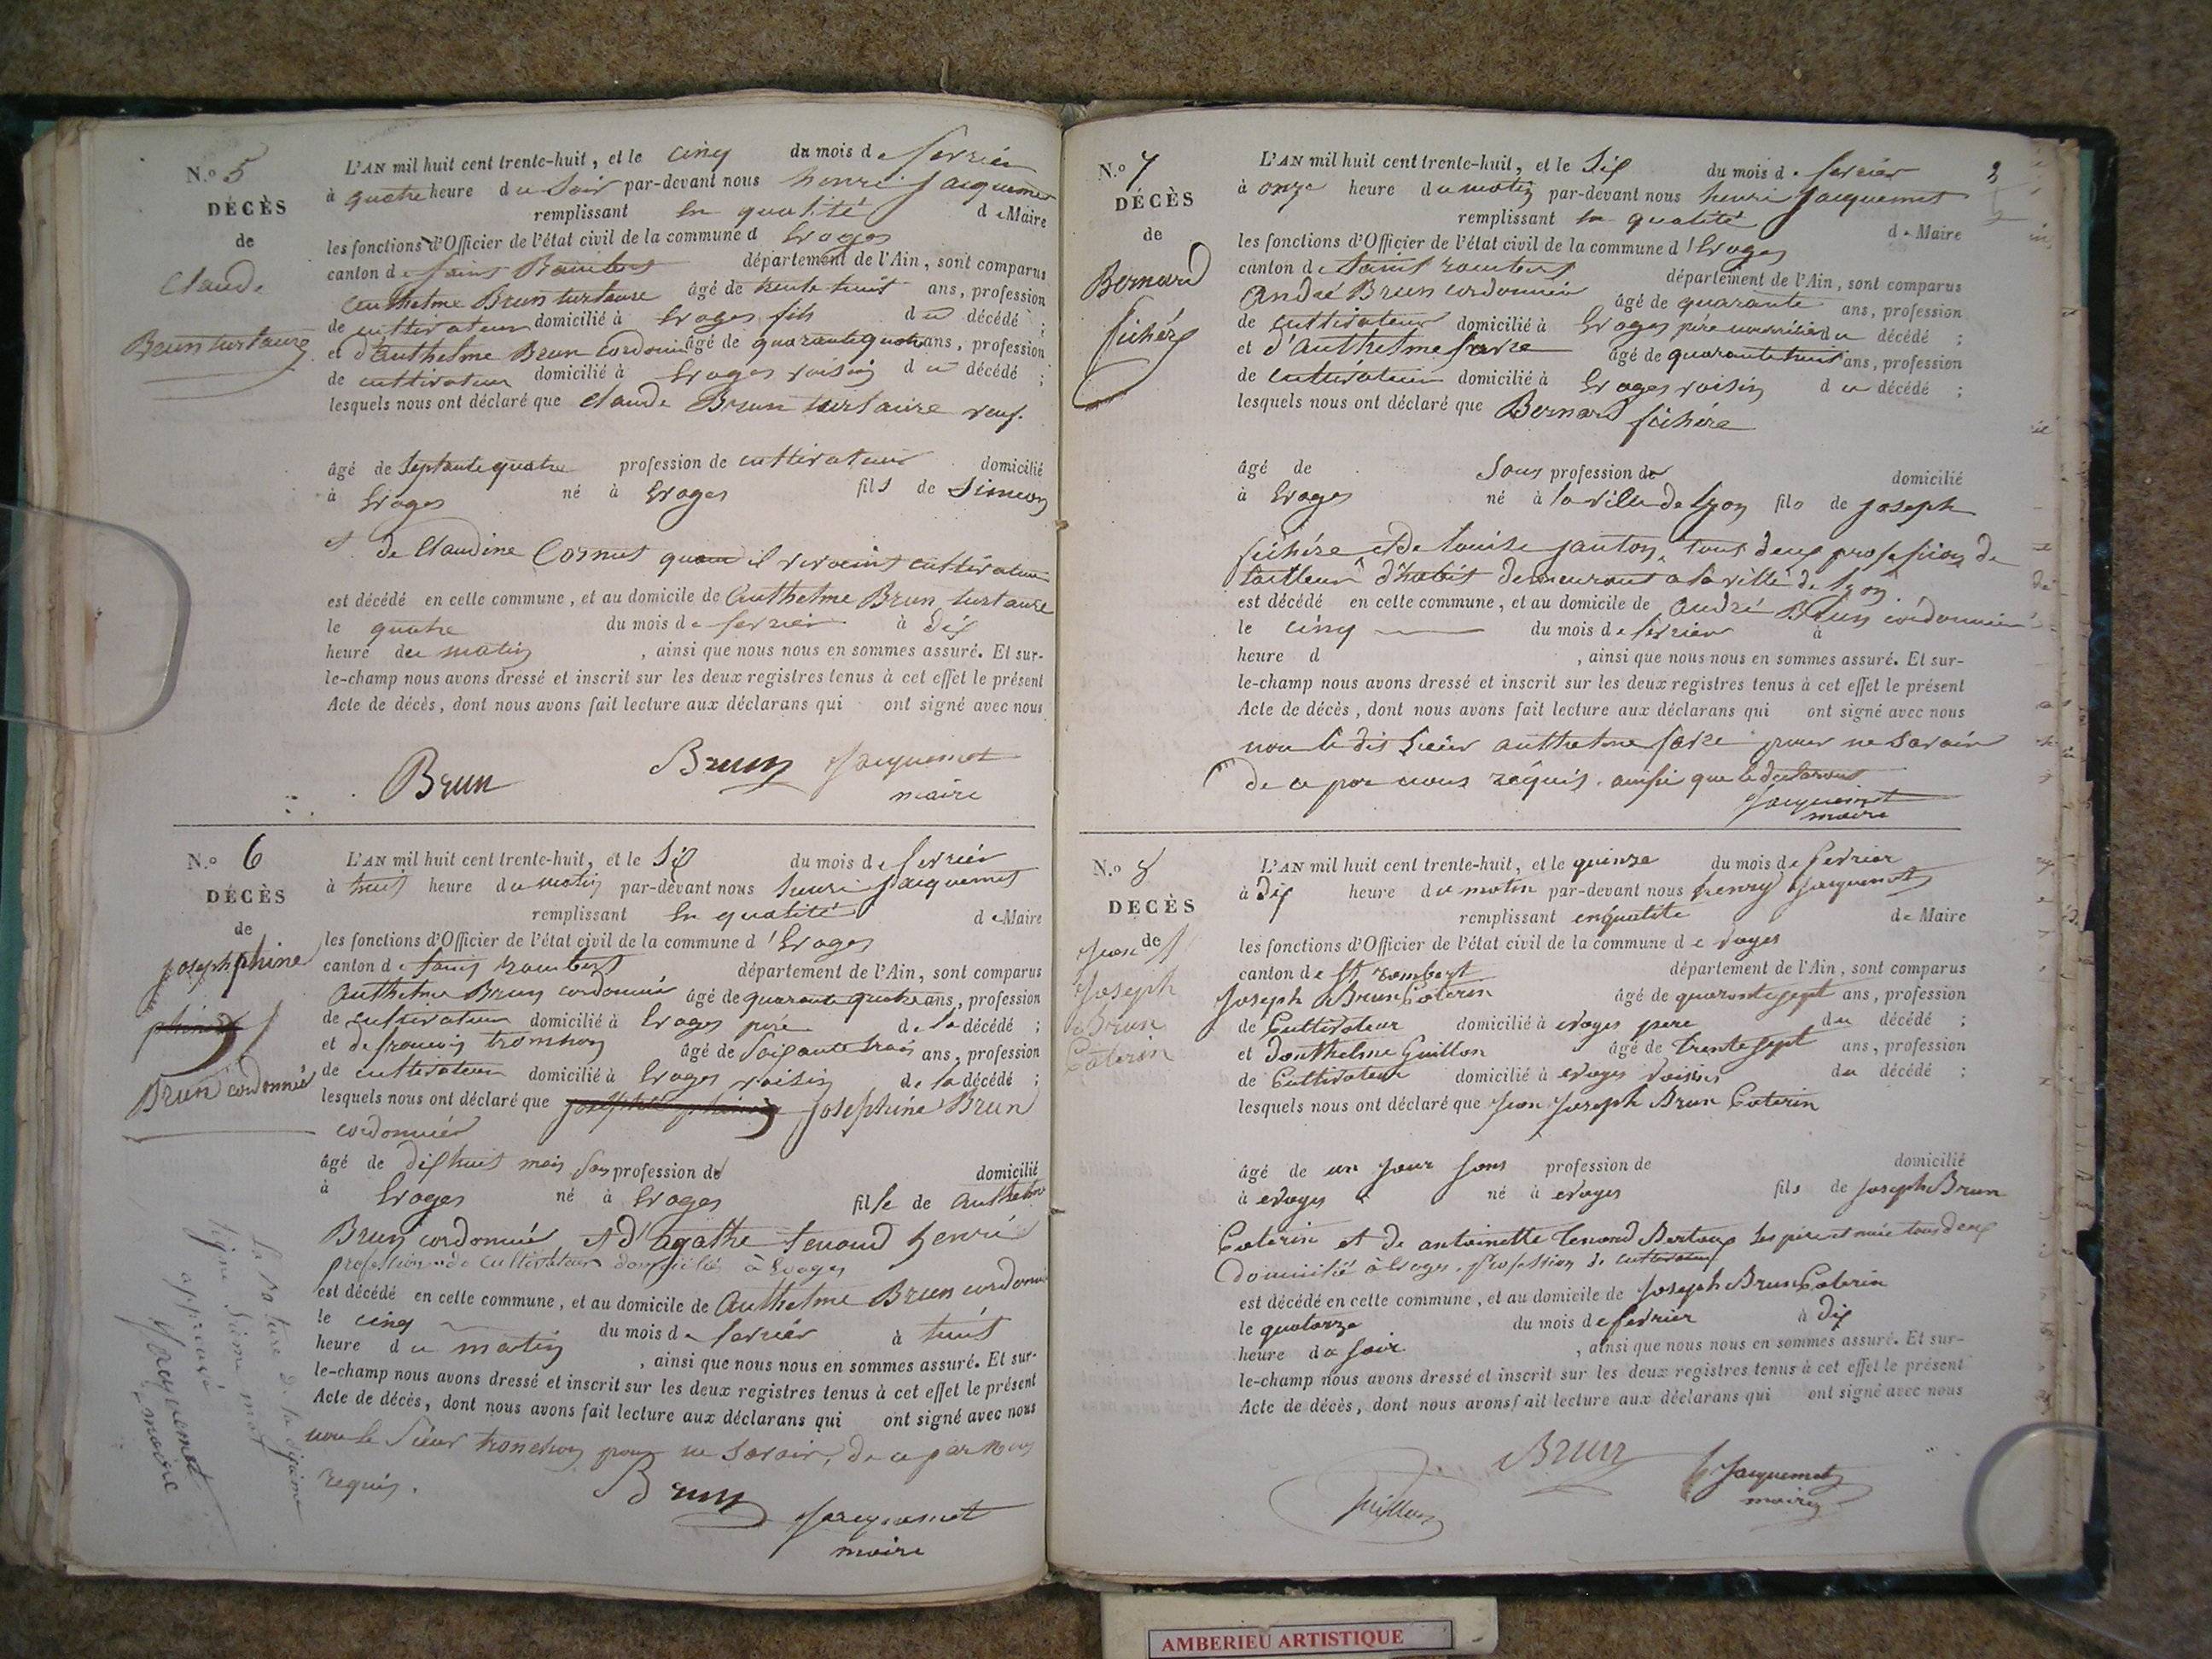 N.o 5
DÉCÈS
de
Claude
Brun turtaure
L'AN mil huit cent trente-huit, et le cinq du mois de fevrier
à quatre heure du soir par-devant nous henri jacquemet
remplissant en qualité de Maire
les fonctions d'Officier de l'état civil de la commune d'Evoges
canton de saint Rambert département de l'Ain, sont comparus
Anthelme Brun turtaure âgé de trente huit ans, profession
de cultivateur domicilié à Evoges fils du décédé ;
et d'anthelme Brun Cordonié âgé de quarante quatre ans, profession
de cultivateur domicilié à Evoges voisin du décédé ;
lesquels nous ont déclaré que Claude Brun turtaure veuf
âgé de septante quatre profession de cultivateur domicilié
à Evoges né à Evoges fils de Simeon
et de Claudine Cornet quand il vivoient cultivateur
est décédé en cette commune, et au domicile de Anthelme Brun turtaure
le quatre du mois de fevrier à dix
heure du matin, ainsi que nous nous en sommes assuré. Et sur-
le-champ nous avons dressé et inscrit sur les deux registres tenus à cet effet le présent
Acte de décès, dont nous avons fait lecture aux déclarans qui ont signé avec nous
Brun Brun Jacquemet
maire
N.o 6
DÉCÈS
de
josephphine
Brun cordonnié
L'AN mil huit cent trente-huit, et le Six du mois de fevrier
à huit heure du matin par-devant nous henri jacquemet
remplissant en qualité de Maire
les fonctions d'Officier de l'état civil de la commune d'Evoges
canton de saint rambert département de l'Ain, sont comparus
Anthelme Brun cordonnié âgé de quarante quatre ans, profession
de cultivateur domicilié à Evoges père de la décédé ;
et de francois tronchon âgé de soixante trois ans, profession
de cultivateur domicilié à Evoges voisin de la décédé ;
lesquels nous ont déclaré que Josephine Brun
cordonnier
âgé de dix huit mois san profession de domicilié
à Evoges né à Evoges fille de Anthelme
Brun cordonnié et d'agathe tenand henri
profession de cultivateur domicilié à Evoges
est décédé en cette commune, et au domicile de Anthelme Brun cordonié
le cinq du mois de fevrier à huit
heure du matin, ainsi que nous nous en sommes assuré. Et sur-
le-champ nous avons dressé et inscrit sur les deux registres tenus à cet effet le présent
Acte de décès, dont nous avons fait lecture aux déclarans qui ont signé avec nous
non le sieur tronchon pour ne savoir, de ce par nous
requis.
Brun
Jacquemet
maire
La Rature de la dixième
ligne mot
approuvé
Jacquemet
maire
2
N.o 7
DÉCÈS
de
Bernard
fichére
L'AN mil huit cent trente-huit, et le Six du mois de fevrier
à onze heure du matin par-devant nous henri jacquemet
remplissant en qualité de Maire
les fonctions d'Officier de l'état civil de la commune d'Evoges
canton de Saint rambert département de l'Ain, sont comparus
André Brun cordonnier âgé de quarante ans, profession
de cultivateur domicilié à Evoges père nourricier du décédé ;
et d'Anthelme favre âgé de quarante huit ans, profession
de cultivateur domicilié à Evoges voisin du décédé ;
lesquels nous ont déclaré que Bernard fichére
âgé de Sans profession de domicilié
à Evoges né à la ville de lyon fils de joseph
fichére et de louise janton, tous deux profession de
tailleur d'habit demeurant à la ville de lyon
est décédé en cette commune, et au domicile de André Brun cordonnier
le cinq du mois de fevrier à
heure d , ainsi que nous nous en sommes assuré. Et sur-
le-champ nous avons dressé et inscrit sur les deux registres tenus à cet effet le présent
Acte de décès, dont nous avons fait lecture aux déclarans qui ont signé avec nous
non le dit Sieur anthelme favre pour ne savoir
de ce par nous réquis. ainsi que le declarant
Jacquemet
maire
N.o 8
DECÈS
de
Jean
Joseph
Brun
Caterin
L'AN mil huit cent trente-huit, et le quinze du mois de fevrier
à dix heure du matin par-devant nous henry jacquemet
remplissant en qualite de Maire
les fonctions d'Officier de l'état civil de la commune de Evoges
canton de St rambert département de l'Ain, sont comparus
Joseph Brun Caterin âgé de quarante sept ans, profession
de Cultivateur domicilié à evoges pere du décédé ;
et d'anthelme Guillon âgé de trente sept ans, profession
de Cultivateur domicilié à evoges voisin du décédé ;
lesquels nous ont déclaré que Jean Joseph Brun Caterin
âgé de un jour sans profession de domicilié
à evoges né à evoges fils de joseph Brun
Caterin et de antoinette Tenand Bertoux ses père et mère tous deux
domicilié à Evoges. profession de cultivateur
est décédé en cette commune, et au domicile de joseph Brun Caterin
le quatorze du mois de fevrier à dix
heure du soir, ainsi que nous nous en sommes assuré. Et sur-
le-champ nous avons dressé et inscrit sur les deux registres tenus à cet effet le présent
Acte de décès, dont nous avons fait lecture aux déclarans qui ont signé avec nous
Brun Jacquemet
Guillon maire
AMBERIEU ARTISTIQUE